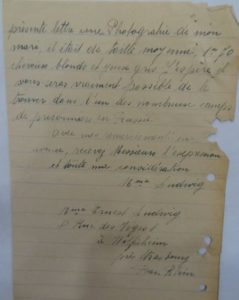 présente lettre une Photographie de mon
mari il était de taille moyenne, 1m70
cheveux blonds et yeux gris. J'espère
vous sera vraiment possible de le
trouver dans l'un des nombreux camps
de prisonniers en Russie
Avec mes remerciements
recevez Messieurs l'expression
et toute ma considération
Mme Ludwig
Mme Ernest Ludwig
Rue des Vosges
à Wolfisheim
près Strasbourg
Bas Rhin